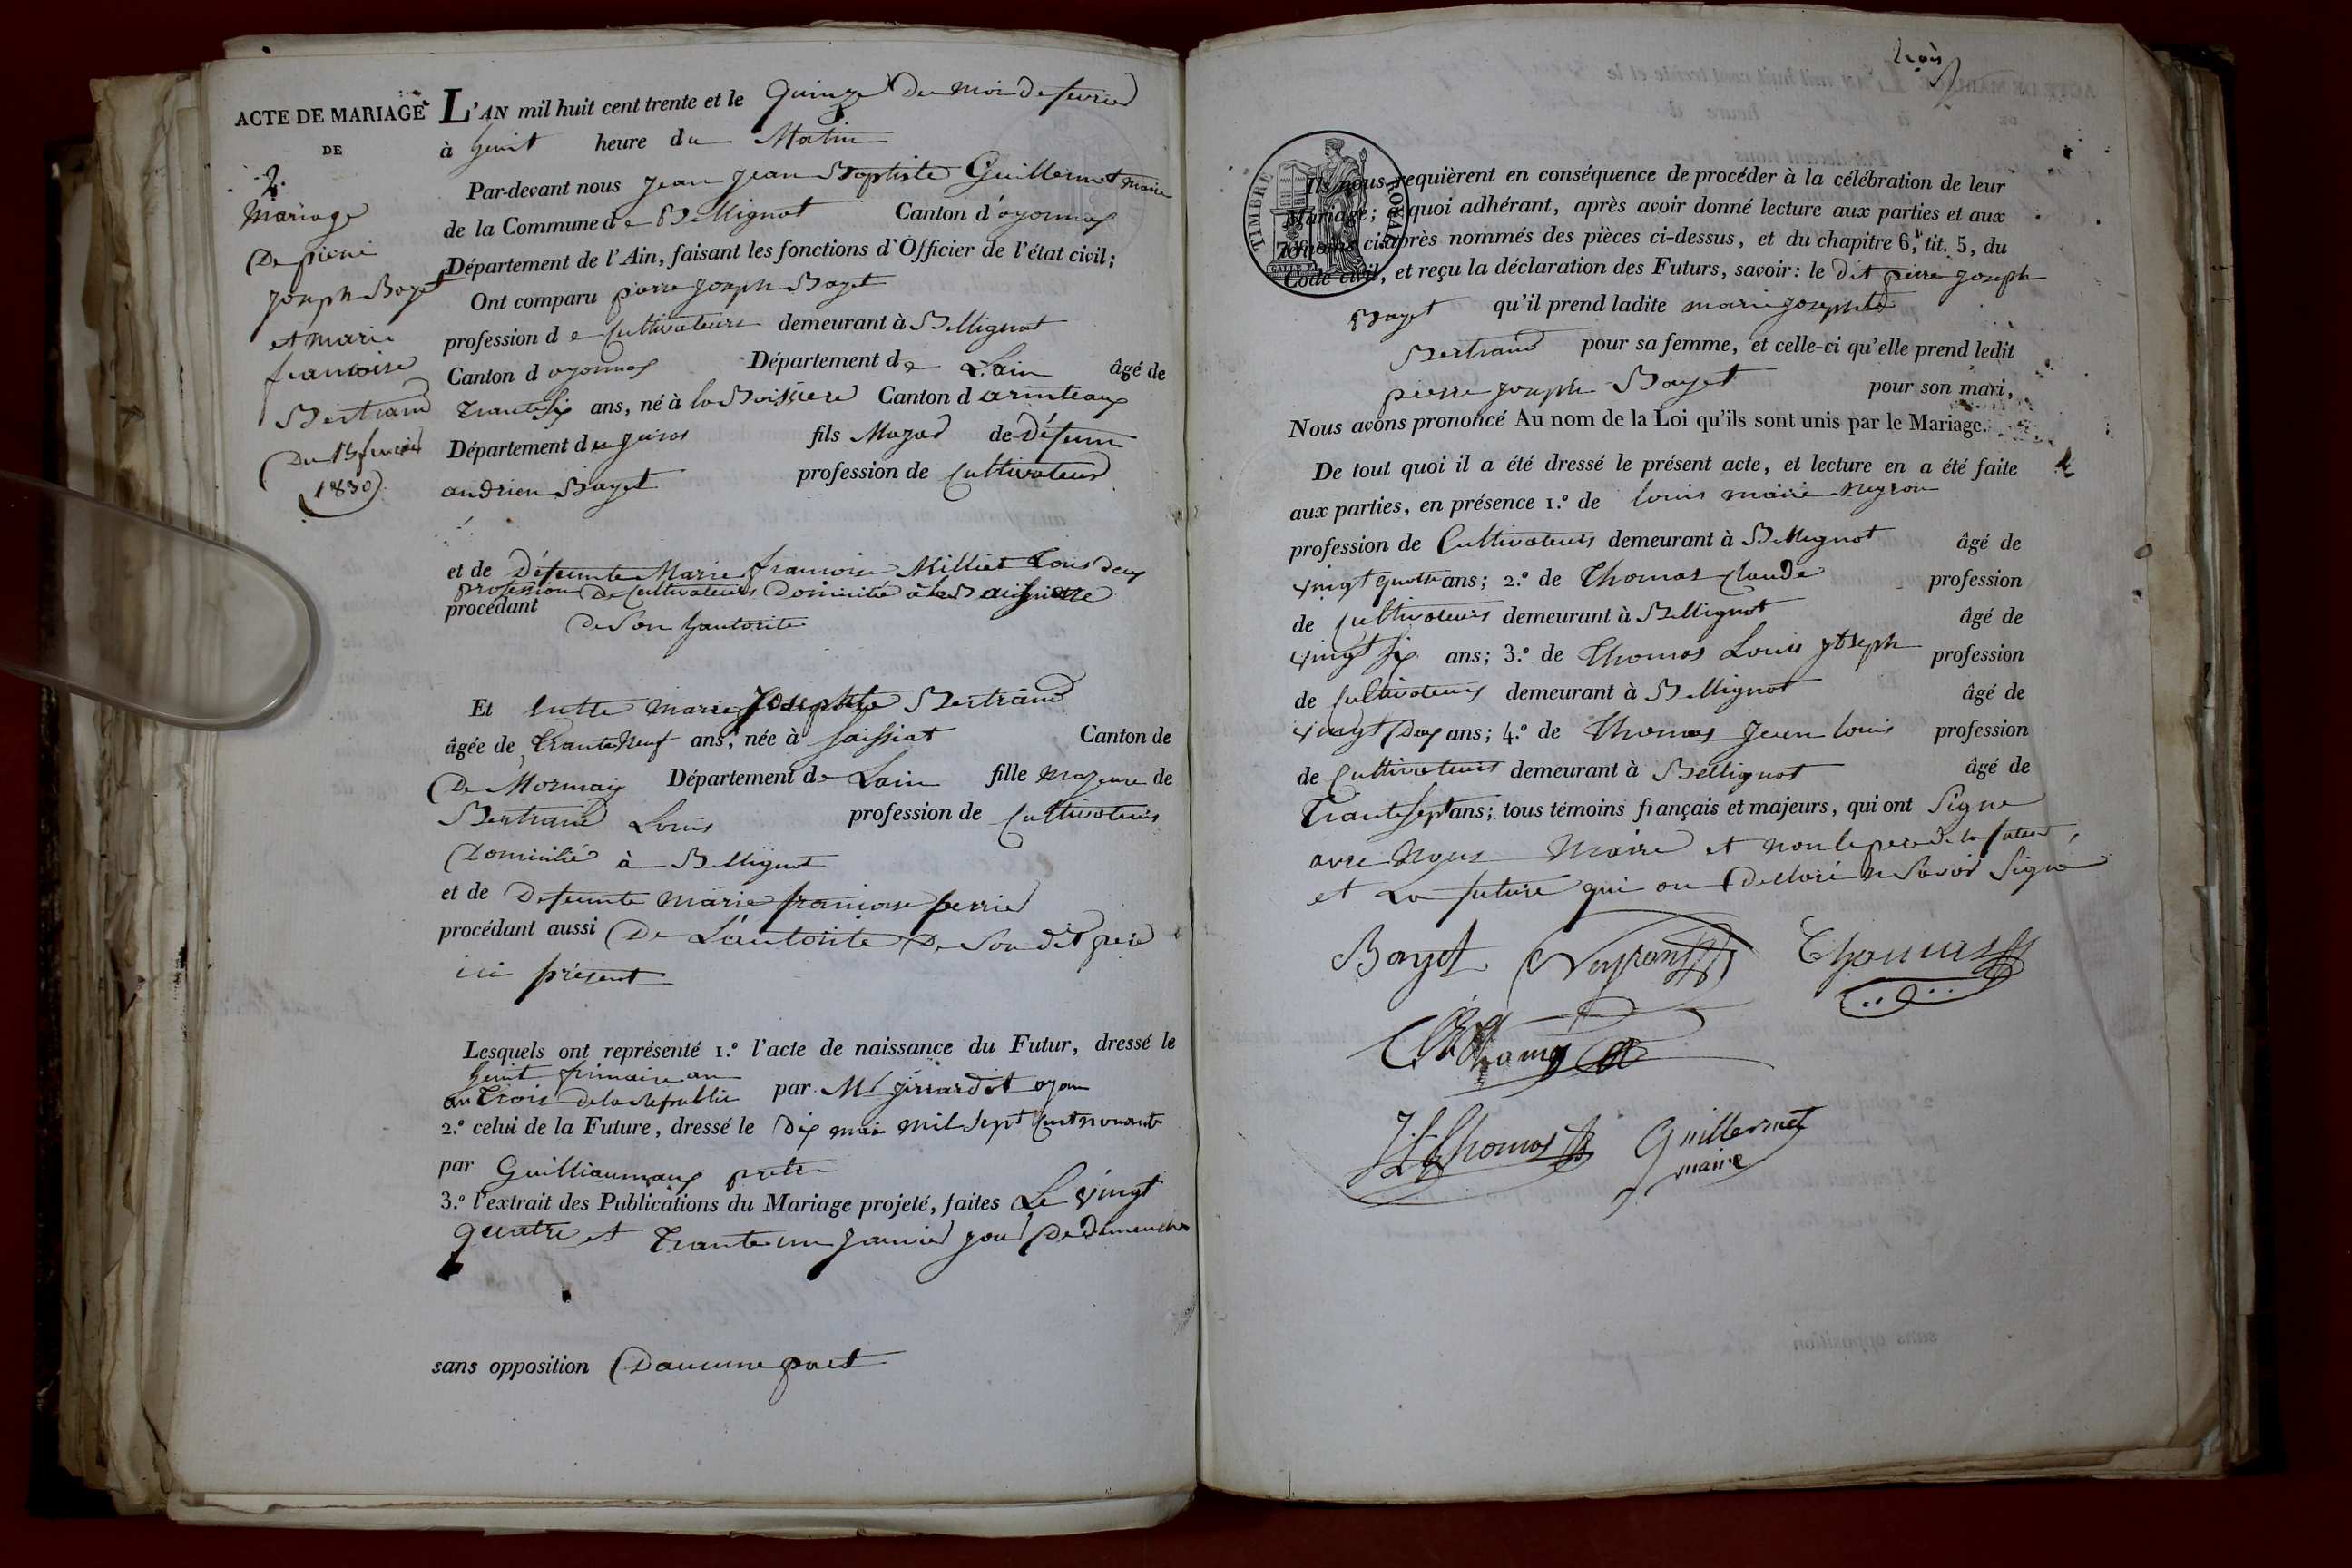 ACTE DE MARIAGE
DE
2.
Mariage
De pierre
joseph Bayet
et marie
francoise
Bertrand
Du 15 fevrier
1830
L'AN mil huit cent trente et le Quinze du mois de fevrier
à huit heure du Matin
Par-devant nous jean jean Baptiste Guillermet maire
de la Commune de Bellignat Canton d'oyonnax
Département de l'Ain, faisant les fonctions d'Officier de l'état civil;
Ont comparu pierre joseph Bayet
profession de Cultivateurs demeurant à Bellignat
Canton d oyonnax Département de Lain âgé de
trante six ans, né à la Boissiere Canton d arinteaux
Département du juras fils Majeur de Défunt
andrien Bayet profession de Cultivateur
et de Défeunte Marie francoise Milliet tous deux
profession De Cultivateurs Domicilié à la Boissiere
procédant De Son hautorite
Et marie Josephte Bertrand
âgée de trante Neuf ans, née à Saissiat Canton de
De Mornay Département de Lain fille majeure de
Bertrand Louis profession de Cultivateurs
Domicilié à Bellignat
et de Defeunte Marie francoise perrier
procédant aussi De L'autorite De Son dit pere
ici présent
Lesquels ont représenté 1.º l'acte de naissance du Futur, dressé le
huit frimaire an
an trois de la Republic par Mr girardot oyon
2.º celui de la Future, dressé le dix mai mil Sept Cent nonante
par Guilliaumaux pretre
3.º l'extrait des Publications du Mariage projeté, faites Le vingt
quatre et trante un janvier jour De dimenche
sans opposition D'aucune part
trois
TIMBRE ROYAL
Ils nous requièrent en conséquence de procéder à la célébration de leur
Mariage; à quoi adhérant, après avoir donné lecture aux parties et aux
Témoins ci-après nommés des pièces ci-dessus, et du chapitre 6, tit. 5, du
Code civil, et reçu la déclaration des Futurs, savoir: le dit pierre joseph
Bayet qu'il prend ladite marie josephte
Bertrand pour sa femme, et celle-ci qu'elle prend ledit
pierre joseph Bayet pour son mari,
Nous avons prononcé Au nom de la Loi qu'ils sont unis par le Mariage.
De tout quoi il a été dressé le présent acte, et lecture en a été faite
aux parties, en présence 1.º de louis marie Neyron
profession de Cultivateurs demeurant à Bellignat âgé de
vingt quatre ans; 2.º de Thomas Claude profession
de Cultivateurs demeurant à Bellignat âgé de
vingt six ans; 3.º de Thomas Louis joseph profession
de Cultivateurs demeurant à Bellignat âgé de
vingt Deux ans; 4.º de Thomas Jean louis profession
de Cultivateurs demeurant à Bellignat âgé de
Trante Sept ans; tous témoins français et majeurs, qui ont Signe
avec Nous Maire et non le pere de la future
et La future qui on Declaré ne Savoir Signé
Bayet Neyron Thomas
Thomas
J L Thomas Guillermet
maire